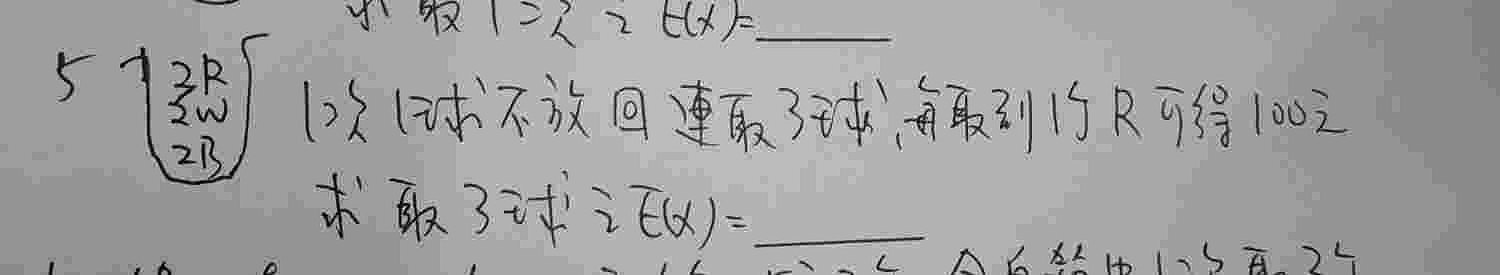 求取1次之E(x)=
5 3R 2W 2B 1次1球不放回連取3球,每取到1个R可得100元
求取3球之E(x)=
1次取